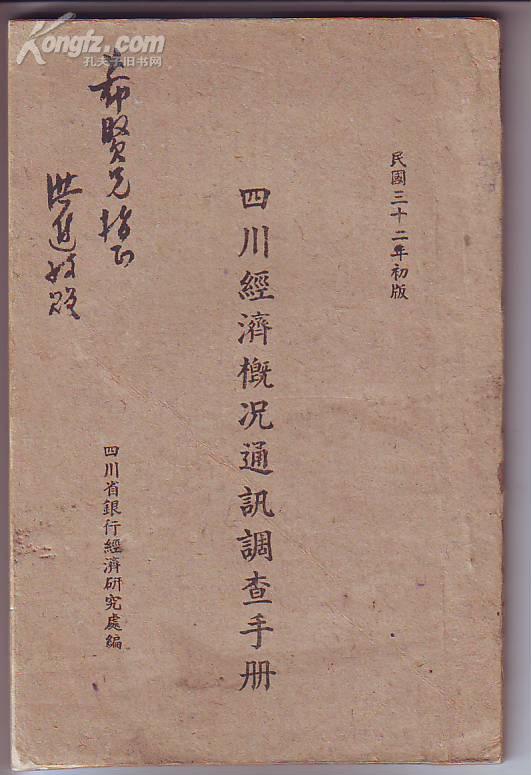 Kongfz.com
孔夫子旧书网
民國三十二年初版
四川經濟概况通訊調查手册
四川省銀行經濟研究處編
希賢兄指正
洪進敬贈